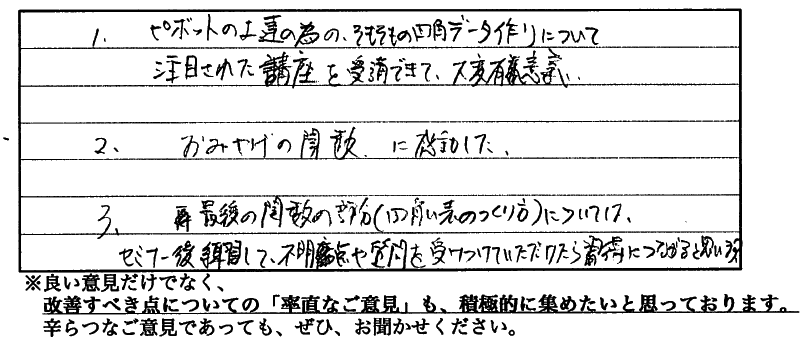 1. ピボットの上達の為の、そもそもの四角データ作りについて
注目された講座を受講できて、大変有意義。
2、 おみやげの関数、に感動した、
3、 最後の関数の部分(四角い表のつくり方)については、
セミナー後練習して、不明点や質問を受けつけていただけたら習得につながると思います
※良い意見だけでなく、
改善すべき点についての「率直なご意見」も、積極的に集めたいと思っております。
辛らつなご意見であっても、ぜひ、お聞かせください。